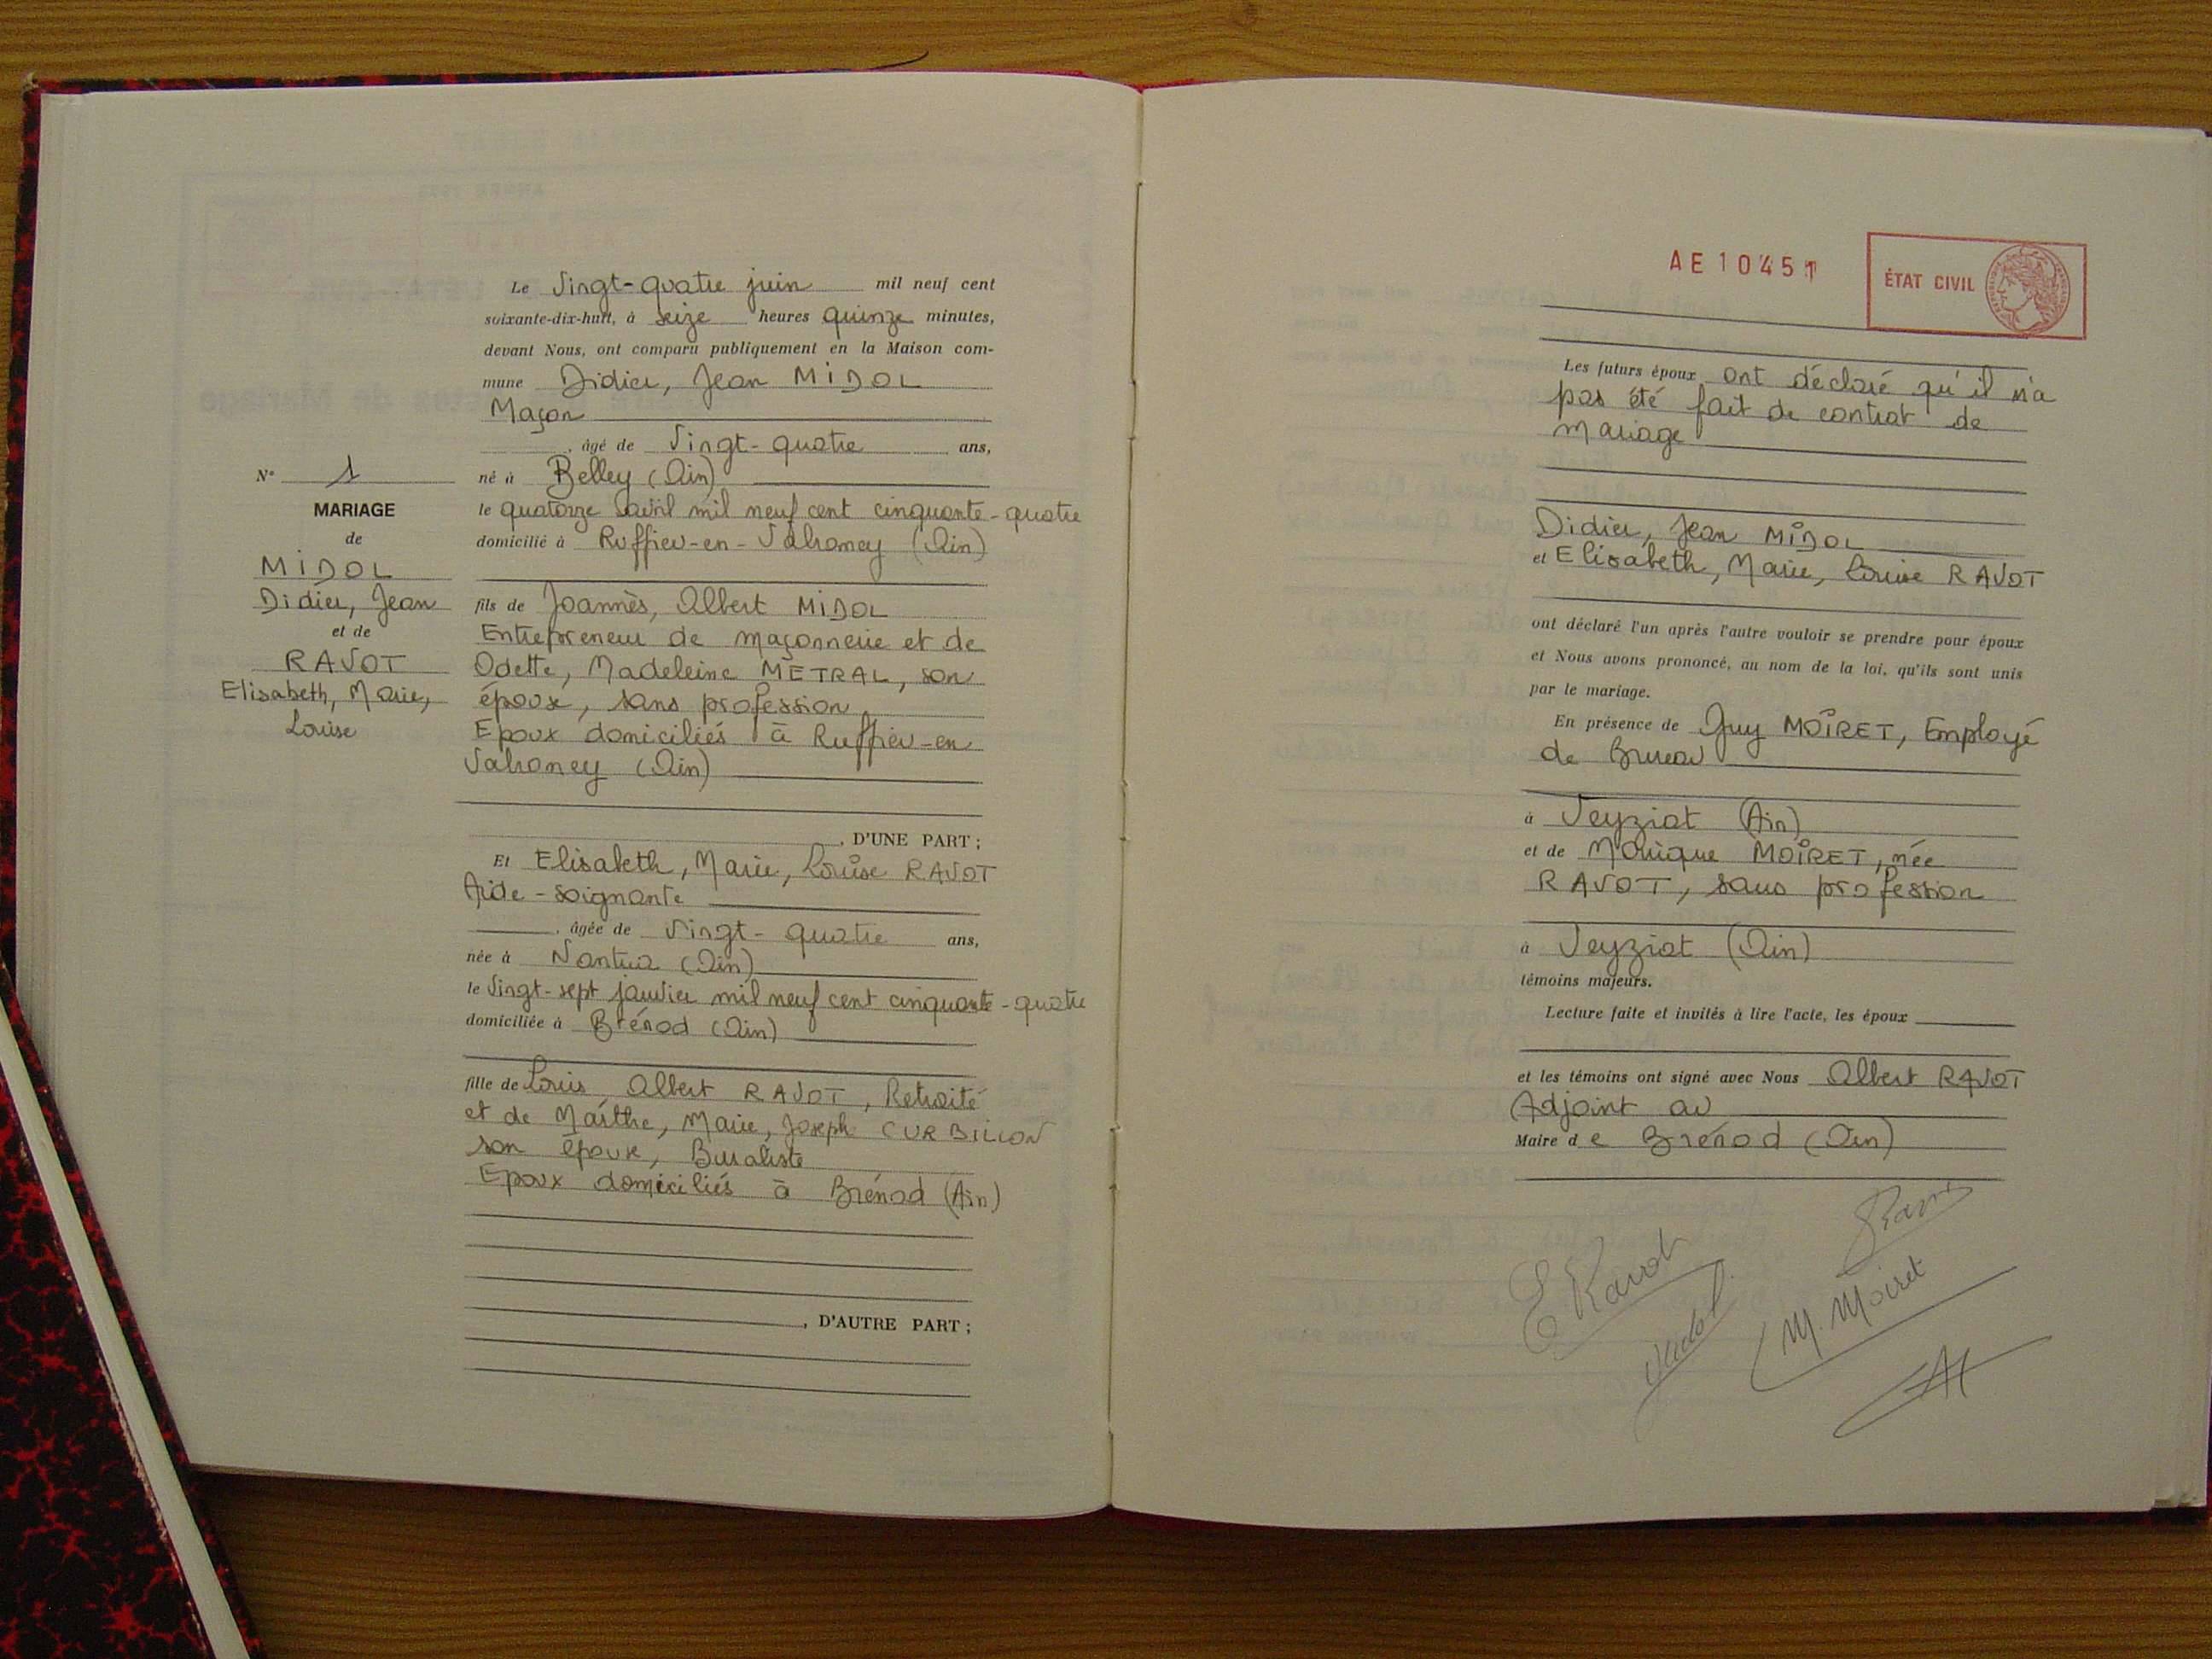 N° 1
MARIAGE
de
MIDOL
Didier, Jean
et de
RAVOT
Elisabeth, Marie,
Louise
Le Vingt-quatre juin mil neuf cent
soixante-dix-huit, à seize heures quinze minutes,
devant Nous, ont comparu publiquement en la Maison com-
mune Didier, Jean MIDOL
Maçon
, âgé de Vingt-quatre ans,
né à Belley (Ain)
le quatorze avril mil neuf cent cinquante-quatre
domicilié à Ruffieu-en-Valromey (Ain)
fils de Joannès, Albert MIDOL
Entrepreneur de maçonnerie et de
Odette, Madeleine METRAL, son
épouse, sans profession
Epoux domiciliés à Ruffieu-en
Valromey (Ain)
, D'UNE PART ;
Et Elisabeth, Marie, Louise RAVOT
Aide-soignante
, âgée de Vingt-quatre ans,
née à Nantua (Ain)
le Vingt-sept janvier mil neuf cent cinquante-quatre
domiciliée à Brénod (Ain)
fille de Louis Albert RAVOT, Retraité
et de Marthe, Marie, Joseph CURBILLON
son épouse, Buraliste
Epoux domiciliés à Brénod (Ain)
, D'AUTRE PART ;
AE 10451
ÉTAT CIVIL
Les futurs époux ont déclaré qu'il n'a
pas été fait de contrat de
mariage
Didier, Jean MIDOL
et Elisabeth, Marie, Louise RAVOT
ont déclaré l'un après l'autre vouloir se prendre pour époux
et Nous avons prononcé, au nom de la loi, qu'ils sont unis
par le mariage.
En présence de Guy MOIRET, Employé
de Bureau
à Veyziat (Ain)
et de Monique MOIRET, née
RAVOT, sans profession
à Veyziat (Ain)
témoins majeurs.
Lecture faite et invités à lire l'acte, les époux
et les témoins ont signé avec Nous Albert RAVOT
Adjoint au
Maire de Brénod (Ain)
E Ravot
Midol
M. Moiret